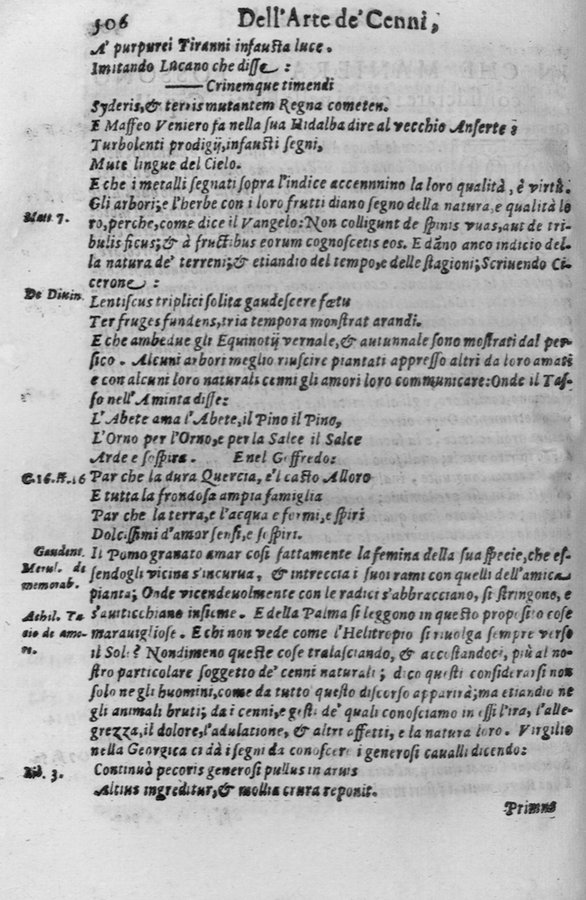 506
Dell'Arte de' Cenni,
A' purpurei Tiranni infausta luce.
Imitando Lucano che disse :
Crinemque timendi
Syderis, & terris mutantem Regna cometen.
E Maffeo Veniero fa nella sua Hidalba dire al vecchio Anserte :
Turbolenti prodigij, infausti segni,
Mute lingue del Cielo.
E che i metalli segnati sopra l'indice accennnino la loro qualità, è virtù.
Gli arbori; e l'herbe con i loro frutti diano segno della natura, e qualità lo
Matt. 7.
ro, perche, come dice il Vangelo: Non colligunt de spinis vuas, aut de tri-
bulis ficus; & à fructibus eorum cognoscetis eos. E dãno anco indicio del-
la natura de' terreni; & etiandio del tempo, e delle stagioni; Scriuendo Ci-
cerone :
De Diuin.
Lentiscus triplici solita gaudescere fœtu
Ter fruges fundens, tria tempora monstrat arandi.
E che ambedue gli Equinotij vernale, & autunnale sono mostrati dal per-
sico . Alcuni arbori meglio riuscire piantati appresso altri da loro amati
e con alcuni loro naturali cenni gli amori loro communicare: Onde il Tas-
so nell'Aminta disse:
L'Abete ama l'Abete, il Pino il Pino,
L'Orno per l'Orno, e per la Salce il Salce
Arde e sospira. E nel Goffredo:
C. 16. st. 16
Par che la dura Quercia, e'l casto Alloro
E tutta la frondosa ampia famiglia
Par che la terra, e l'acqua e formi, e spiri
Dolcissimi d'amor sensi, e sospiri.
Gaudent.
Merul. de
memorab.
Il Pomo granato amar così fattamente la femina della sua specie, che es-
sendogli vicina s'incurua, & intreccia i suoi rami con quelli dell'amica
pianta; Onde vicendeuolmente con le radici s'abbracciano, si stringono, e
Achil. Ta
tio de amo-
s'auiticchiano insieme. E della Palma si leggono in questo proposito cose
marauigliose. E chi non vede come l'Helitropio si riuolga sempre verso
il Sole? Nondimeno queste cose tralasciando, & accostandoci, più al no-
stro particolare soggetto de' cenni naturali; dico questi considerarsi non
solo ne gli huomini, come da tutto questo discorso apparirà; ma etiandio ne
gli animali bruti; da i cenni, e gesti de' quali conosciamo in essi l'ira, l'alle-
grezza, il dolore, l'adulatione, & altri affetti, e la natura loro. Virgilio
nella Georgica ci dà i segni da conoscere i generosi caualli dicendo:
Lib. 3.
Continuò pecoris generosi pullus in aruis
Altius ingreditur, & mollia crura reponit.
Primus